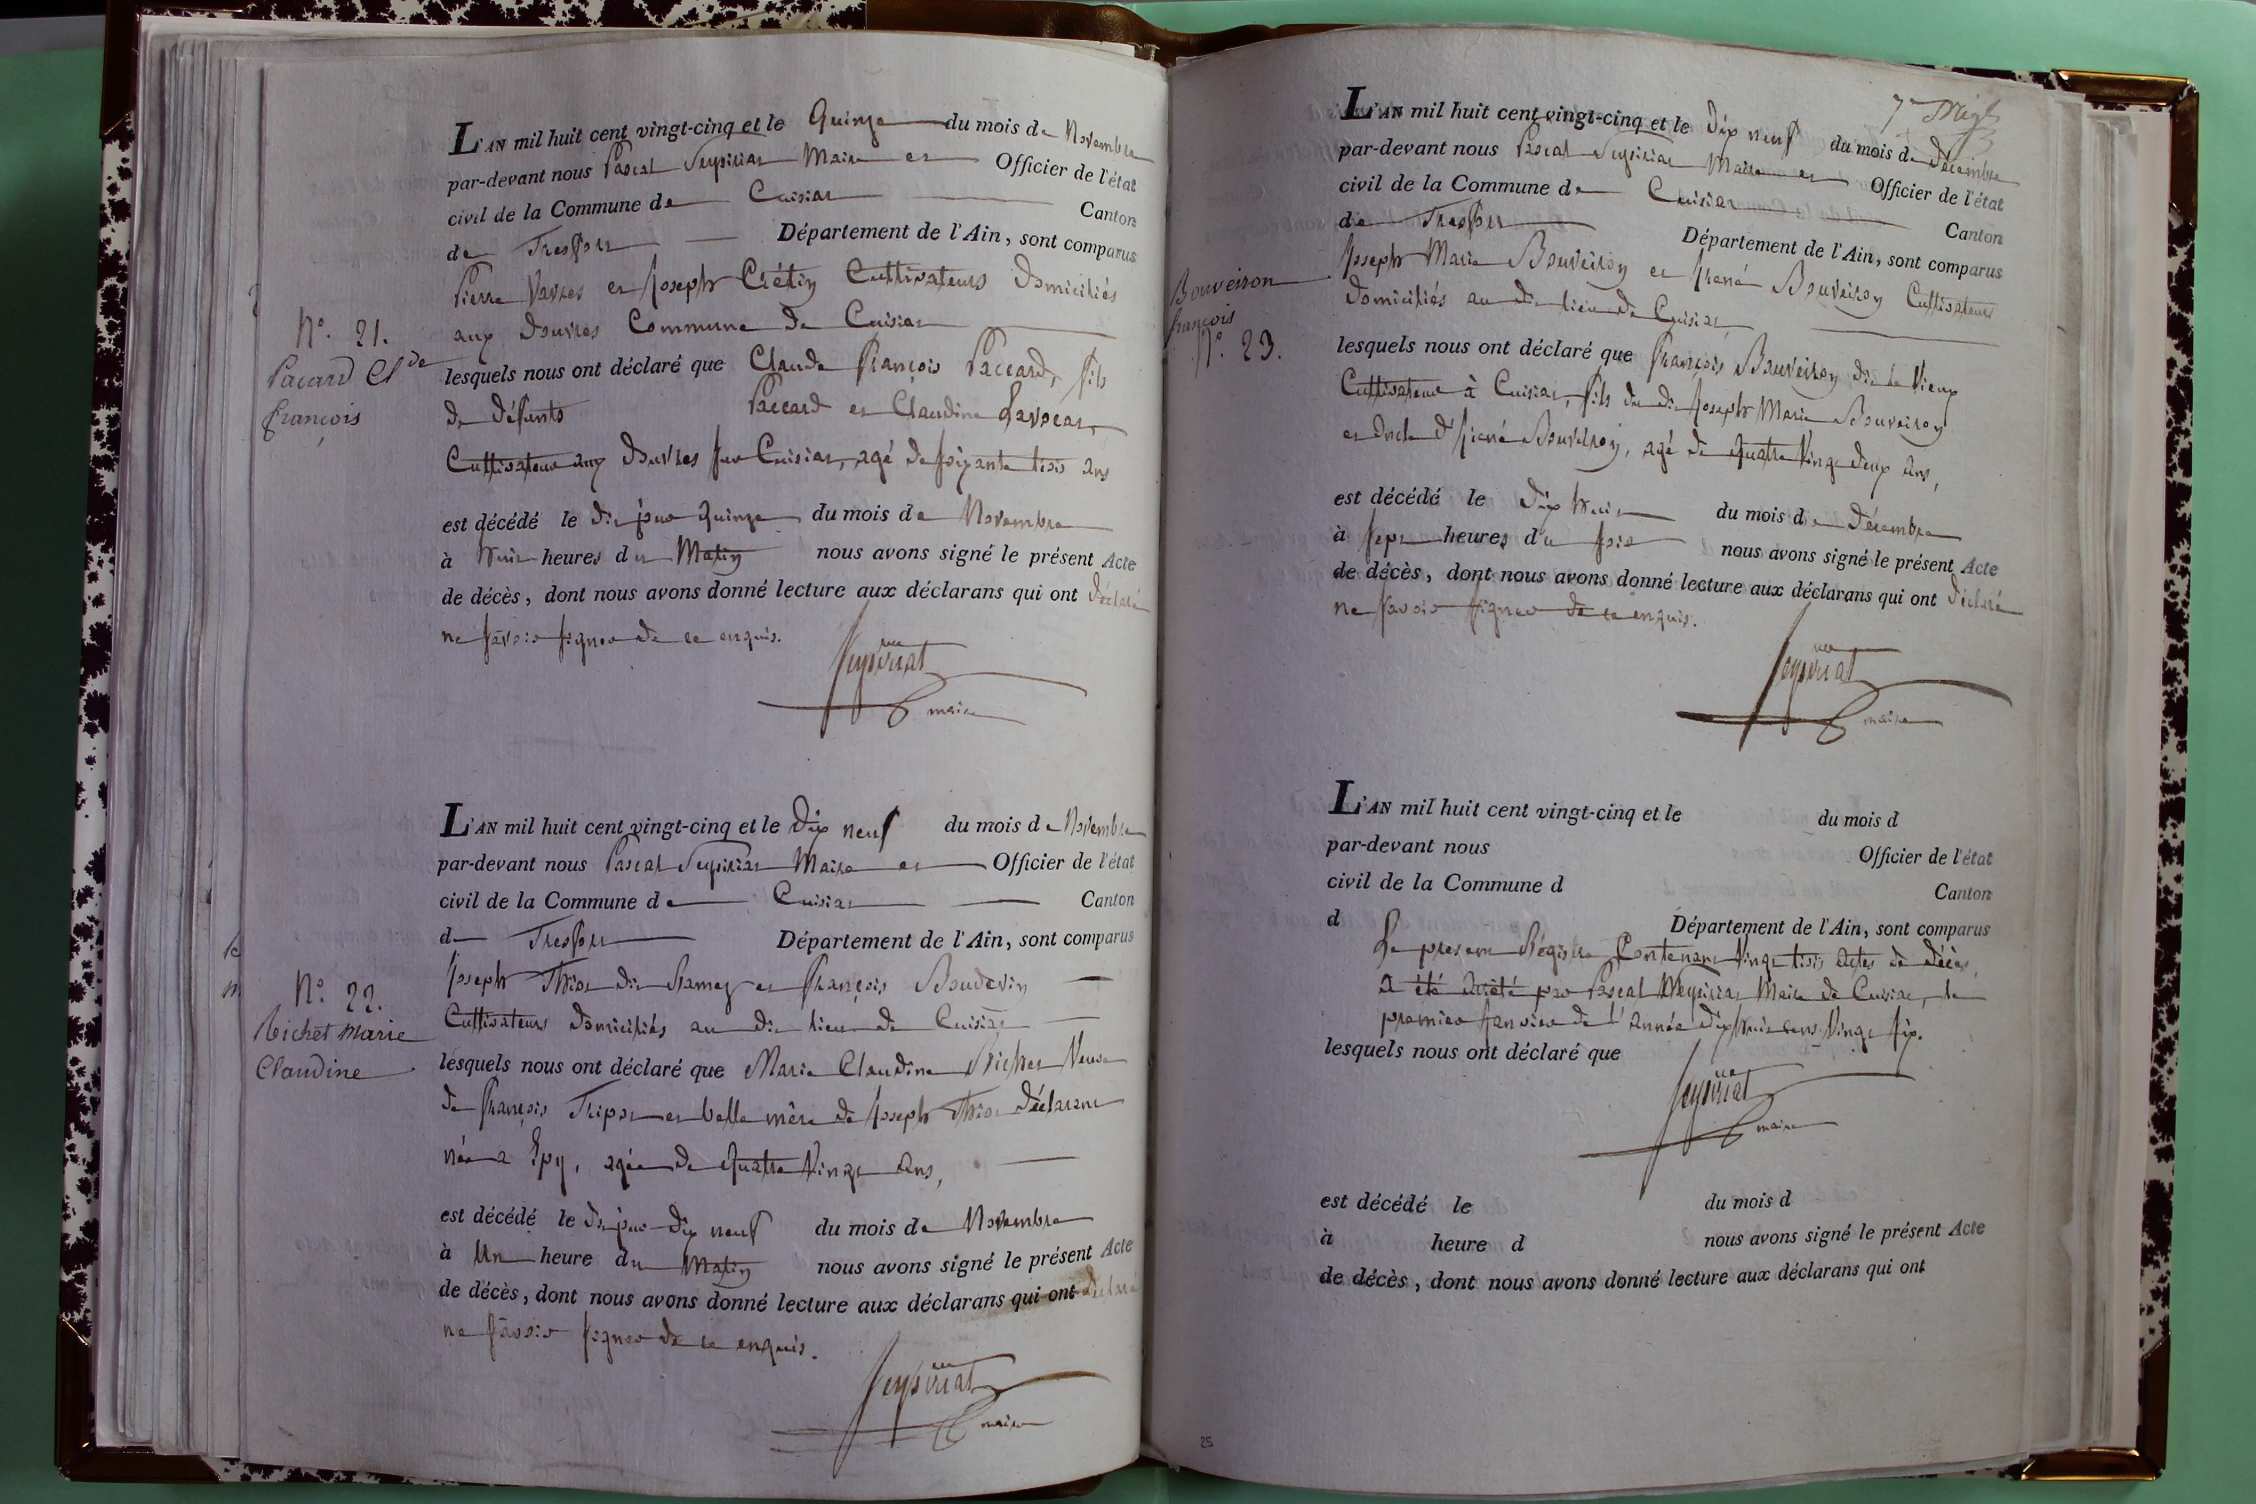 L'AN mil huit cent vingt-cinq et le Quinze du mois de Novembre
par-devant nous Pascal Meysiriat Maire et Officier de l'état
civil de la Commune de Cuisiat Canton
de Treffort Département de l'Ain, sont comparus
Pierre Vavres et Joseph Crétin Cultivateurs Domiciliés
aux Douvres Commune de Cuisiat
N.° 21.
Pacard Cl.de
françois
lesquels nous ont déclaré que Claude François Paccard, fils
de défunts Paccard et Claudine Lavocat,
Cultivateur aux Douvres sur Cuisiat, agé de soixante trois ans
est décédé le dit jour quinze du mois de Novembre
à huit heures du Matin nous avons signé le présent Acte
de décès, dont nous avons donné lecture aux déclarans qui ont déclaré
ne savoir signer de ce enquis.
Meysiriat
maire
L'AN mil huit cent vingt-cinq et le Dix neuf du mois de Novembre
par-devant nous Pascal Meysiriat Maire et Officier de l'état
civil de la Commune de Cuisiat Canton
de Treffort Département de l'Ain, sont comparus
Joseph Thiot dit Ramez et François Boudevin
Cultivateurs domiciliés au dit lieu de Cuisiat
N.° 22.
Richet Marie
Claudine
lesquels nous ont déclaré que Marie Claudine Richet Veuve
de François Tripoz et belle mère de Joseph Thiot déclarant
née a Epy, agée de quatre Vingt ans,
est décédé le dit jour dix neuf du mois de Novembre
à Un heure du Matin nous avons signé le présent Acte
de décès, dont nous avons donné lecture aux déclarans qui ont déclaré
ne savoir signer de ce enquis.
Meysiriat
maire
L'AN mil huit cent vingt-cinq et le Dix neuf du mois de Décembre
par-devant nous Pascal Meysiriat Maire et Officier de l'état
civil de la Commune de Cuisiat Canton
de Treffort Département de l'Ain, sont comparus
Joseph Marie Bouveiron et Hiéné Bouveiron Cultivateurs
domiciliés au dit lieu de Cuisiat
Bouveiron
françois
N.° 23.
lesquels nous ont déclaré que François Bouveiron dit le Vieux
Cultivateur à Cuisiat, fils du dit Joseph Marie Bouveiron
et oncle d'Hiéné Bouveiron, agé de quatre Vingt deux ans,
est décédé le dix huit du mois de Décembre
à sept heures du soir nous avons signé le présent Acte
de décès, dont nous avons donné lecture aux déclarans qui ont déclaré
ne savoir signer de ce enquis.
Meysiriat
maire
L'AN mil huit cent vingt-cinq et le du mois d
par-devant nous Officier de l'état
civil de la Commune d Canton
d Département de l'Ain, sont comparus
Le present Régistre Contenant Vingt trois actes de décès,
a été arrêté par Pascal Meysiriat Maire de Cuisiat, le
premier Janvier de l'année dix huit cent Vingt six.
lesquels nous ont déclaré que
Meysiriat
maire
est décédé le du mois d
à heure d nous avons signé le présent Acte
de décès, dont nous avons donné lecture aux déclarans qui ont
25